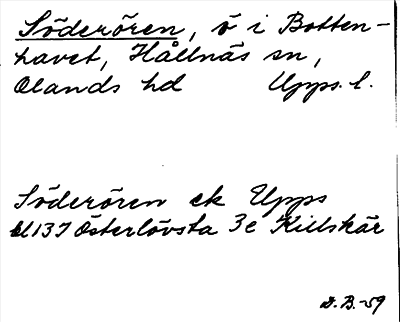 Söderören, ö i Botten-
havet, Hållnäs sn,
Olands hd Upps. l.
Söderören ek Upps
bl 137 Österlövsta 3e Killskär
D.B.-59